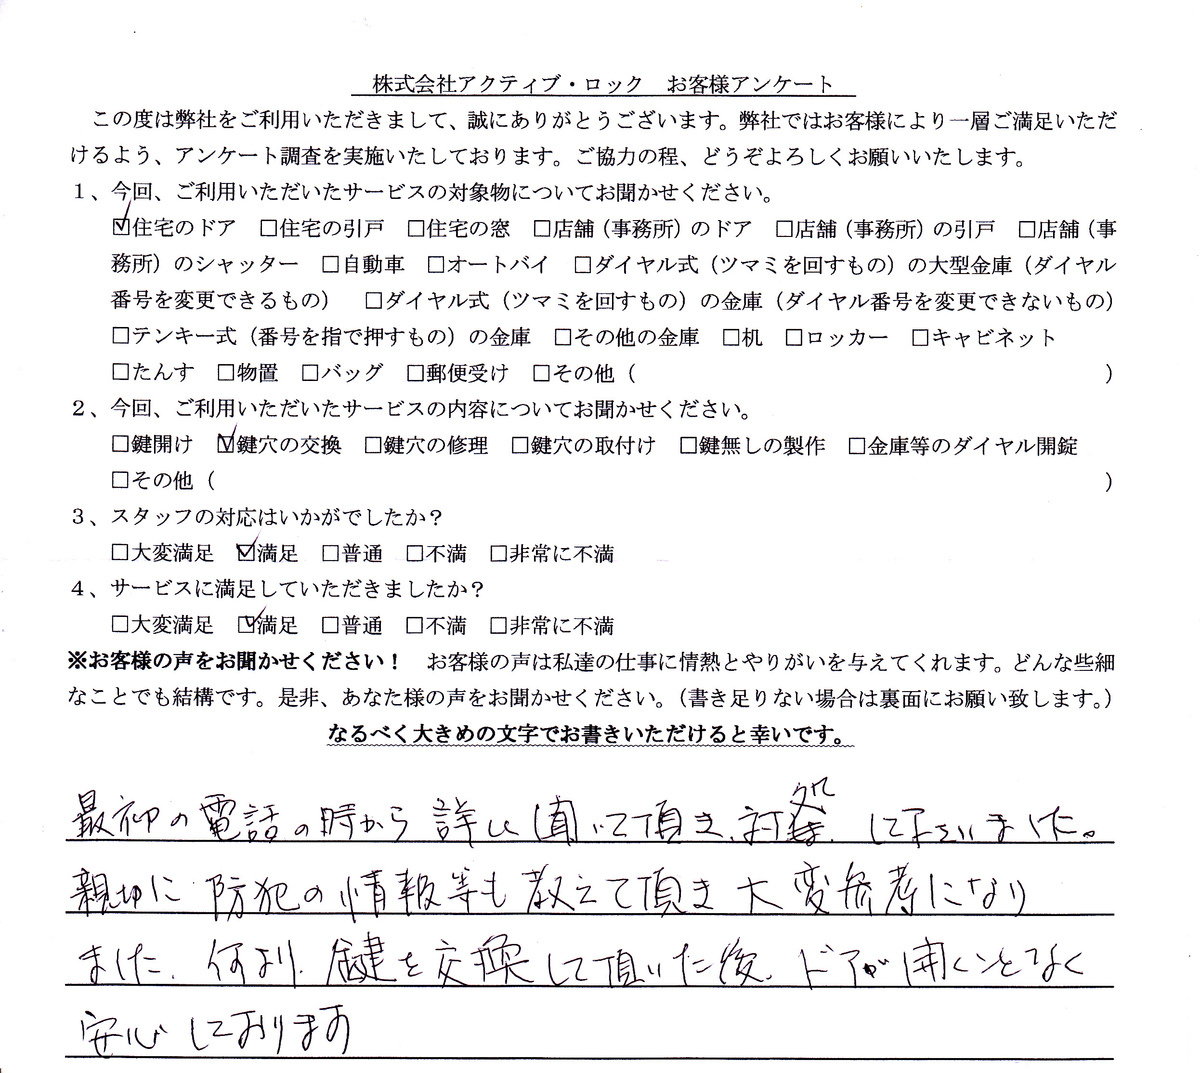 株式会社アクティブ・ロック　お客様アンケート
この度は弊社をご利用いただきまして、誠にありがとうございます。弊社ではお客様により一層ご満足いただ
けるよう、アンケート調査を実施いたしております。ご協力の程、どうぞよろしくお願いいたします。
１、今回、ご利用いただいたサービスの対象物についてお聞かせください。
☑住宅のドア　□住宅の引戸　□住宅の窓　□店舗（事務所）のドア　□店舗（事務所）の引戸　□店舗（事
務所）のシャッター　□自動車　□オートバイ　□ダイヤル式（ツマミを回すもの）の大型金庫（ダイヤル
番号を変更できるもの）　□ダイヤル式（ツマミを回すもの）の金庫（ダイヤル番号を変更できないもの）
□テンキー式（番号を指で押すもの）の金庫　□その他の金庫　□机　□ロッカー　□キャビネット
□たんす　□物置　□バッグ　□郵便受け　□その他（　　　）
２、今回、ご利用いただいたサービスの内容についてお聞かせください。
□鍵開け　☑鍵穴の交換　□鍵穴の修理　□鍵穴の取付け　□鍵無しの製作　□金庫等のダイヤル開錠
□その他（　　　）
３、スタッフの対応はいかがでしたか？
□大変満足　☑満足　□普通　□不満　□非常に不満
４、サービスに満足していただきましたか？
□大変満足　☑満足　□普通　□不満　□非常に不満
※お客様の声をお聞かせください！　お客様の声は私達の仕事に情熱とやりがいを与えてくれます。どんな些細
なことでも結構です。是非、あなた様の声をお聞かせください。（書き足りない場合は裏面にお願い致します。）
なるべく大きめの文字でお書きいただけると幸いです。
最初の電話の時から詳しく聞いて頂き、対処して下さいました。
親切に防犯の情報等も教えて頂き大変参考になり
ました。何より、鍵を交換して頂いた後、ドアが開くことなく
安心しております